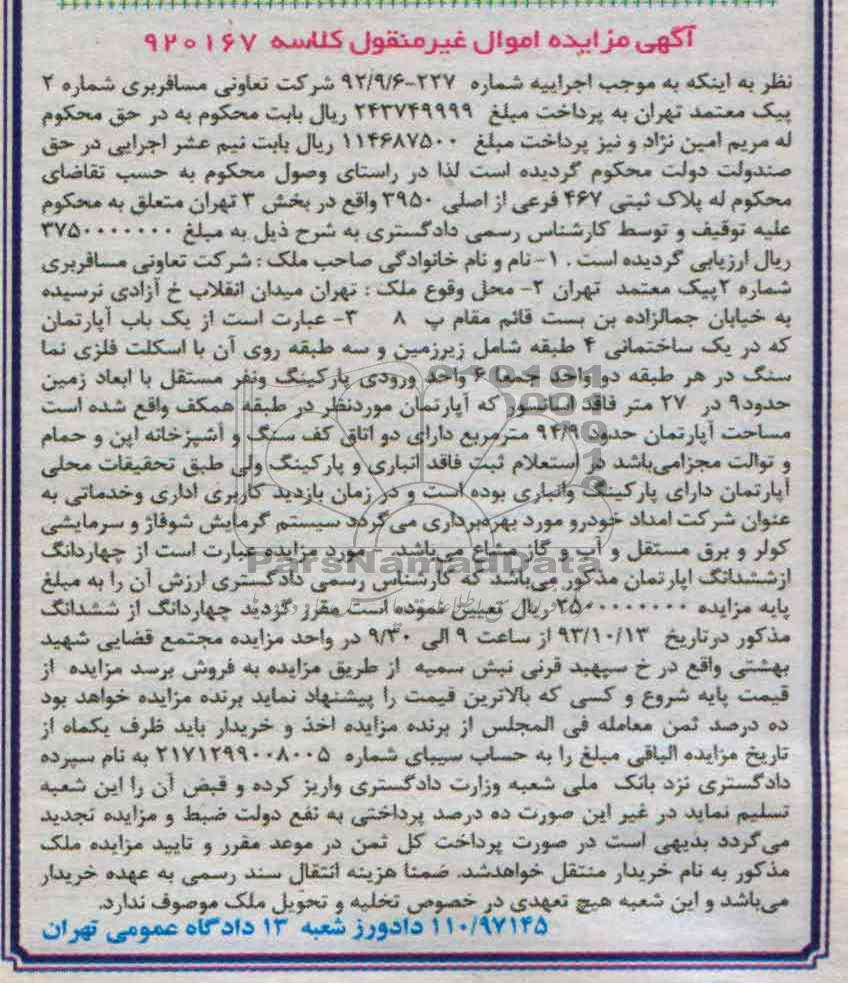 آگهی مزایده اموال غیرمنقول کلاسه ۹۲۰۱۶۷
نظر به اینکه به موجب اجراییه شماره ۲۲۷-۹۲/۹/۶ شرکت تعاونی مسافربری شماره ۲
پیک معتمد تهران به پرداخت مبلغ ۲۴۳۷۴۹۹۹۹ ریال بابت محکوم به در حق محکوم
له مریم امین نژاد و نیز پرداخت مبلغ ۱۱۴۶۸۷۵۰۰ ریال بابت نیم عشر اجرایی در حق
صندولت دولت محکوم گردیده است لذا در راستای وصول محکوم به حسب تقاضای
محکوم له پلاک ثبتی ۴۶۷ فرعی از اصلی ۳۹۵۰ واقع در بخش ۳ تهران متعلق به محکوم
علیه توقیف و توسط کارشناس رسمی دادگستری به شرح ذیل به مبلغ ۳۷۵۰۰۰۰۰۰۰
ریال ارزیابی گردیده است . ۱- نام و نام خانوادگی صاحب ملک : شرکت تعاونی مسافربری
شماره ۲پیک معتمد تهران ۲- محل وقوع ملک : تهران میدان انقلاب خ آزادی نرسیده
به خیابان جمالزاده بن بست قائم مقام پ ۸ ۳- عبارت است از یک باب آپارتمان
که در یک ساختمانی ۴ طبقه شامل زیرزمین و سه طبقه روی آن با اسکلت فلزی نما
سنگ در هر طبقه دو واحد جمعا ۶ واحد ورودی پارکینگ ونفر مستقل با ابعاد زمین
حدود۹ در ۲۷ متر فاقد اسانسور که آپارتمان موردنظر در طبقه همکف واقع شده است
مساحت آپارتمان حدود ۹۴/۹ مترمربع دارای دو اتاق کف سنگ و آشپزخانه اپن و حمام
و توالت مجزامی‌باشد در استعلام ثبت فاقد انباری و پارکینگ ولی طبق تحقیقات محلی
آپارتمان دارای پارکینگ وانباری بوده است و در زمان بازدید کاربری اداری وخدماتی به
عنوان شرکت امداد خودرو مورد بهره‌برداری می‌گردد سیستم گرمایش شوفاژ و سرمایشی
کولر و برق مستقل و آب و گاز مشاع می‌باشد. مورد مزایده عبارت است از چهاردانگ
ازششدانگ اپارتمان مذکور می‌باشد که کارشناس رسمی دادگستری ارزش آن را به مبلغ
پایه مزایده ۲۵۰۰۰۰۰۰۰۰ ریال تعیین نموده است مقرر گردید چهاردانگ از ششدانگ
مذکور درتاریخ ۹۳/۱۰/۱۳ از ساعت ۹ الی ۹/۳۰ در واحد مزایده مجتمع قضایی شهید
بهشتی واقع در خ سپهبد قرنی نبش سمیه از طریق مزایده به فروش برسد مزایده از
قیمت پایه شروع و کسی که بالاترین قیمت را پیشنهاد نماید برنده مزایده خواهد بود
ده درصد ثمن معامله فی المجلس از برنده مزایده اخذ و خریدار باید ظرف یکماه از
تاریخ مزایده الباقی مبلغ را به حساب سیبای شماره ۲۱۷۱۲۹۹۰۰۸۰۰۵ به نام سپرده
دادگستری نزد بانک ملی شعبه وزارت دادگستری واریز کرده و قبض آن را این شعبه
تسلیم نماید در غیر این صورت ده درصد پرداختی به نفع دولت ضبط و مزایده تجدید
می‌گردد بدیهی است در صورت پرداخت کل ثمن در موعد مقرر و تایید مزایده ملک
مذکور به نام خریدار منتقل خواهدشد. ضمنا هزینه انتقال سند رسمی به عهده خریدار
می‌باشد و این شعبه هیچ تعهدی در خصوص تخلیه و تحویل ملک موصوف ندارد.
۱۱۰/۹۷۱۴۵ دادورز شعبه ۱۳ دادگاه عمومی تهران
ParsNamadData